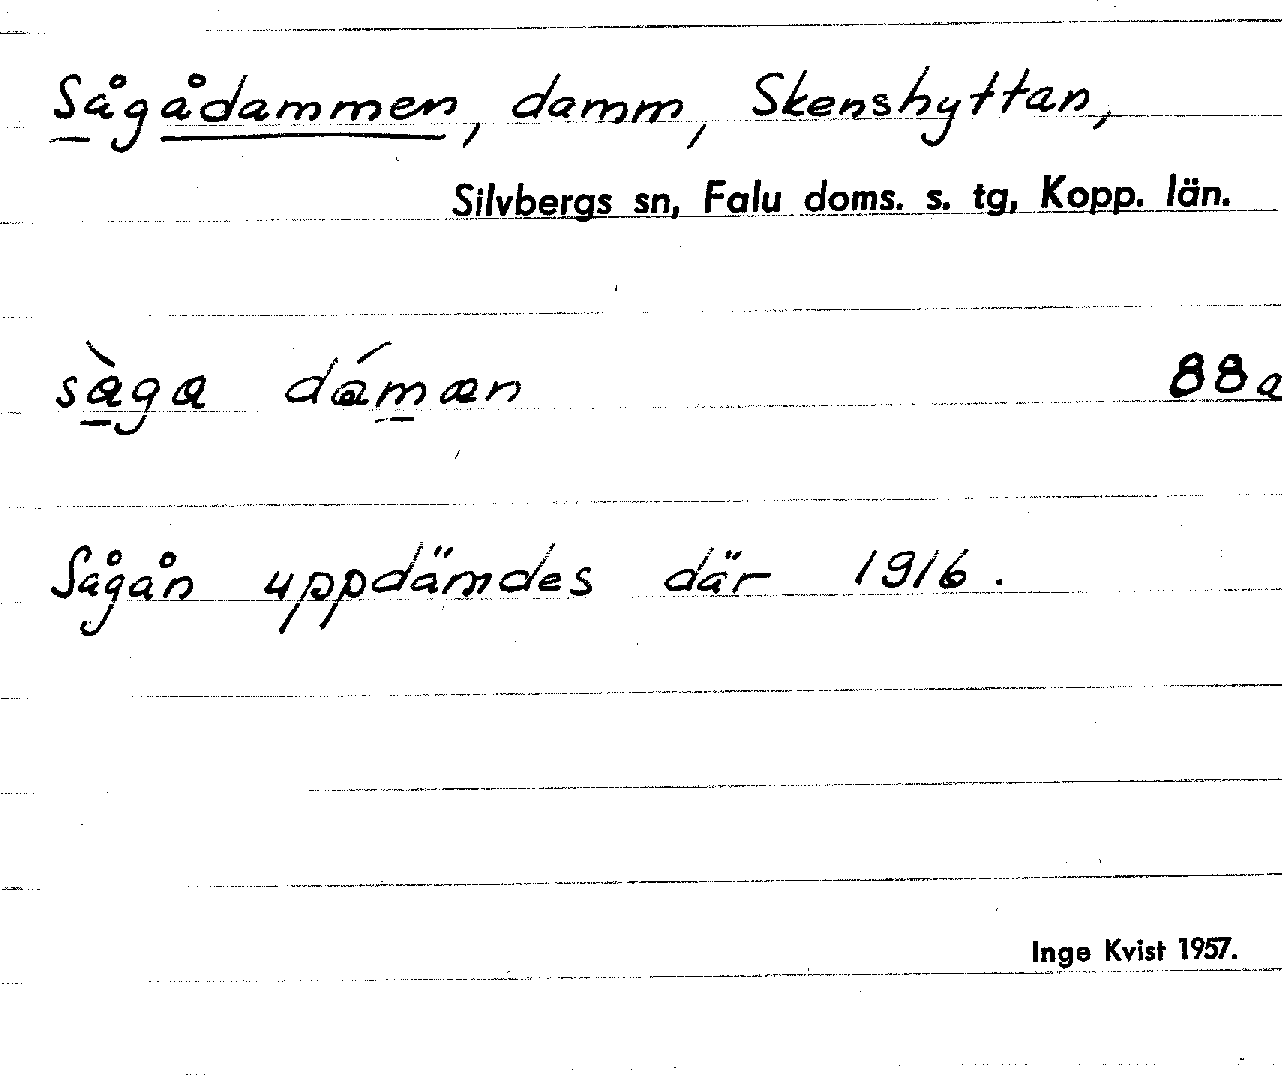 Sågådammen, damm, Stenshyttan,
Silvbergs sn, Falu doms. s. tg, Kopp. län.
sàga dáman 88a
Sågån uppdämdes där 1916.
Inge Kvist 1957.